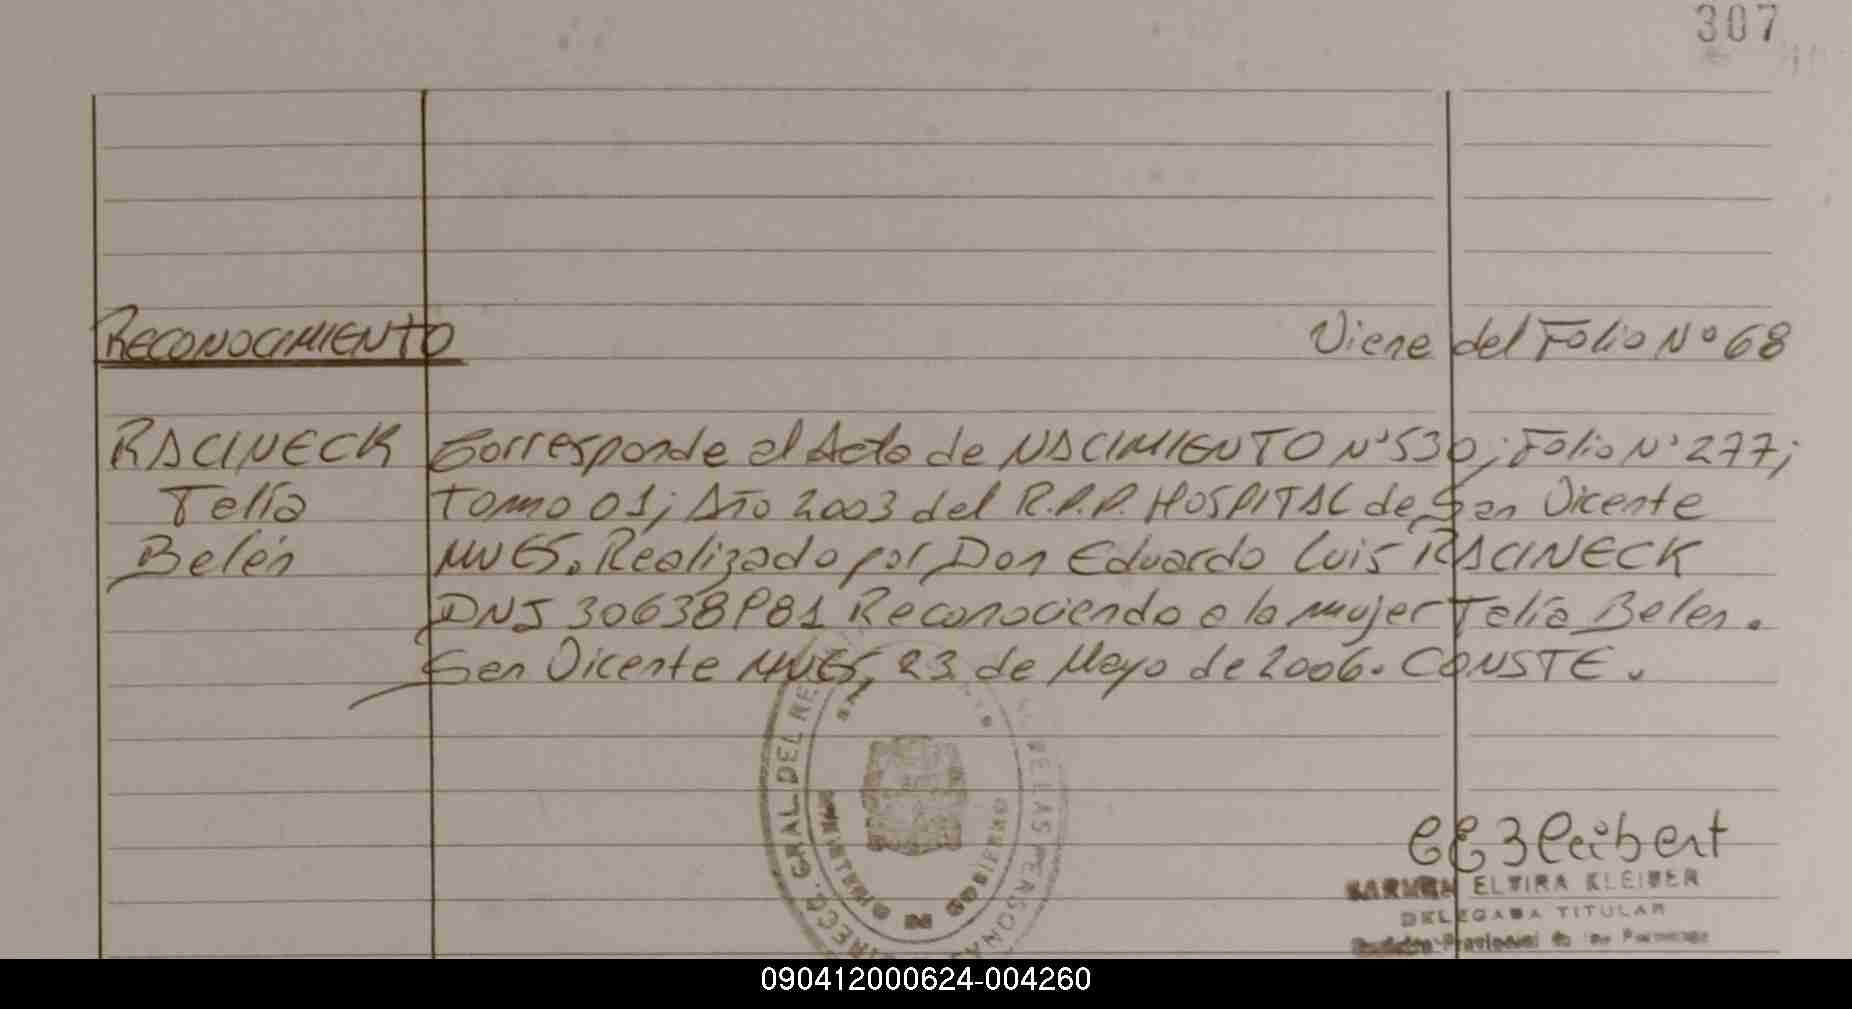 307
RECONOCIMIENTO Viene del Folio Nº 68
RACINECK Corresponde al Acta de NACIMIENTO Nº 530; Folio Nº 277;
Telía Tomo 01; Año 2003 del R.P.P. HOSPITAL de San Vicente
Belén MNES. Realizado por Don Eduardo Luis RACINECK
DNI 30638981 Reconociendo a la mujer Telía Belen.
San Vicente MNES, 23 de Mayo de 2006. CONSTE.
DIRECC. GRAL. DEL RE
DE LAS PERSONAS
MINISTERIO DE GOBIERNO
CARMEN ELVIRA KLEIBER
DELEGADA TITULAR
Registro Provincial de las Personas
090412000624-004260